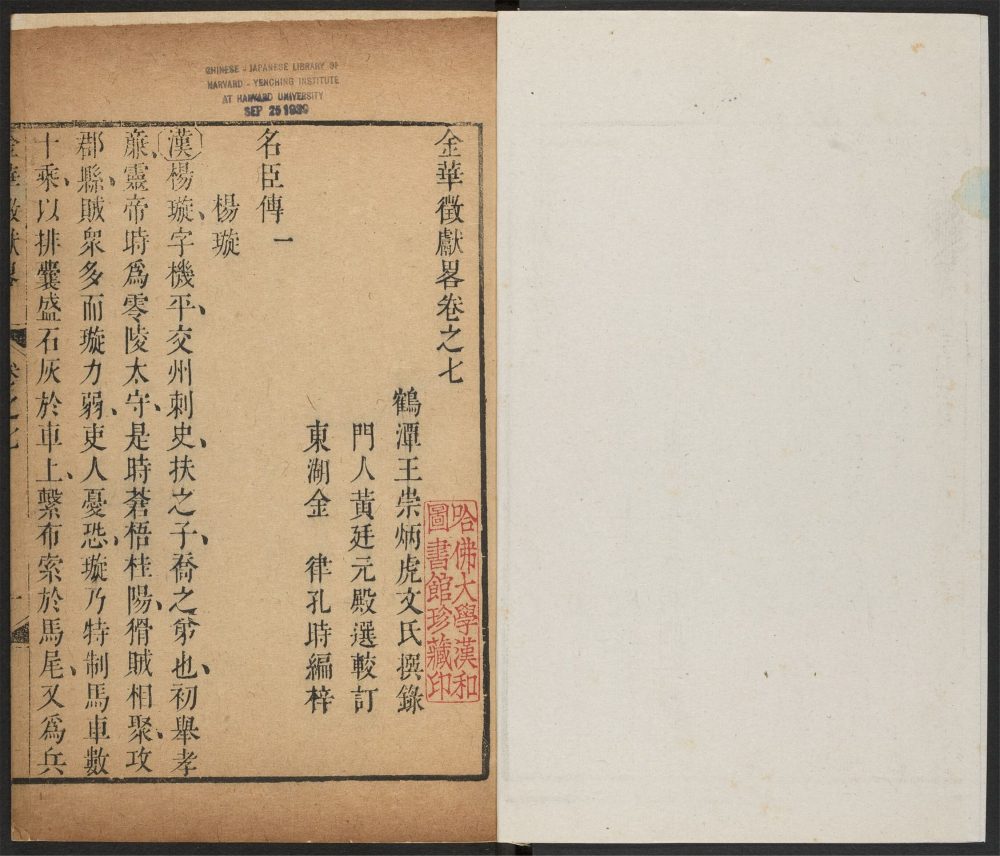 CHINESE - JAPANESE LIBRARY OF
HARVARD - YENCHING INSTITUTE
AT HARVARD UNIVERSITY
SEP 25 1939
金華徵獻畧卷之七
鶴潭王崇炳虎文氏撰錄
門人黃廷元殿選較訂
東湖金　律孔時編梓
哈佛大學漢和
圖書館珍藏印
名臣傳一
楊璇
漢楊璇字機平、交州刺史、扶之子、喬之弟也、初舉孝
廉、靈帝時爲零陵太守、是時蒼梧桂陽、猾賊相聚、攻
郡縣、賊衆多而璇力弱、吏人憂恐、璇乃特制馬車數
十乘、以排囊盛石灰於車上、繫布索於馬尾、又爲兵
金華徵獻畧
卷之七
一